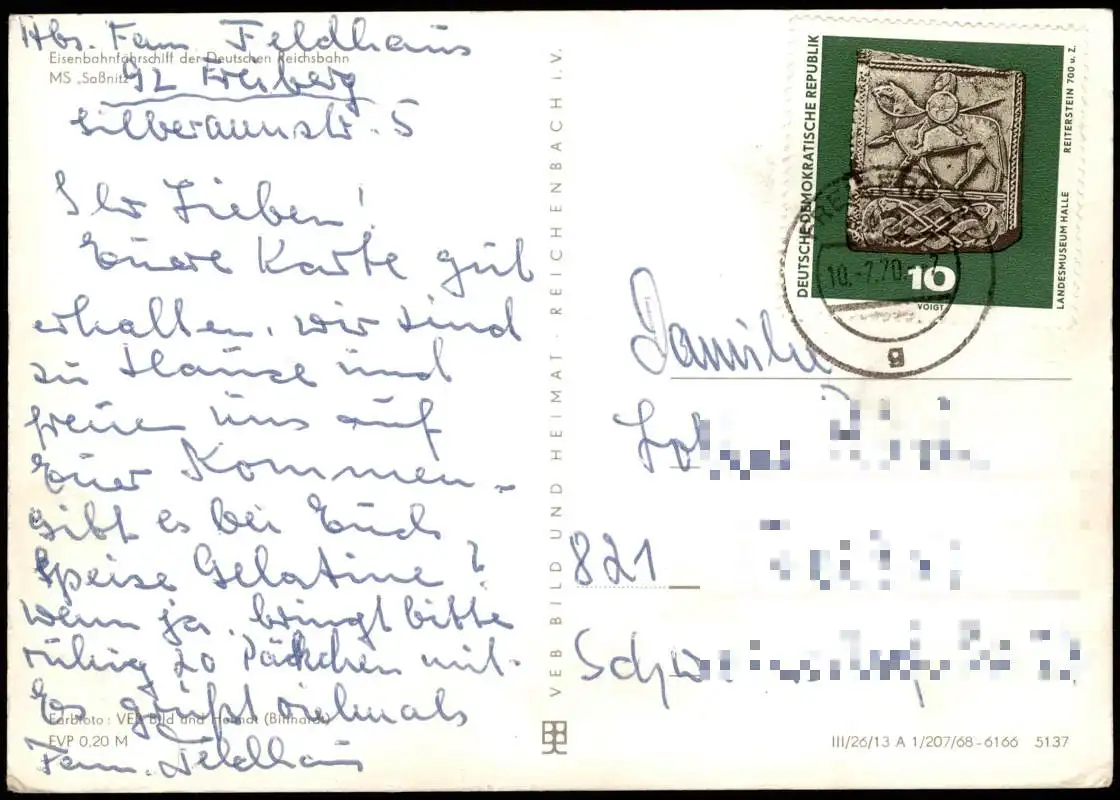 Abs. Fam. Feldhaus
Eisenbahnfährschiff der Deutschen Reichsbahn
MS „Saßnitz"
92 Freiberg
Silbermannstr. 5
Ihr Lieben!
Euere Karte gut
erhalten, wir sind
zu Hause und
freuen uns auf
Euer Kommen.
Gibt es bei Euch
Speise Gelatine?
Wenn ja, bringt bitte
ruhig 20 Päckchen mit.
Es grüßt vielmals
Farbfoto: VEB Bild und Heimat (Birnhardt)
EVP 0,20 M
Fam. Feldhaus
VEB BILD UND HEIMAT · REICHENBACH I. V.
DEUTSCHE DEMOKRATISCHE REPUBLIK
REITERSTEIN 700 u. Z.
LANDESMUSEUM HALLE
10
VOIGT
FREIBERG
10.-7.70.-
g
Familie
821
III/26/13 A 1/207/68-6166 5137